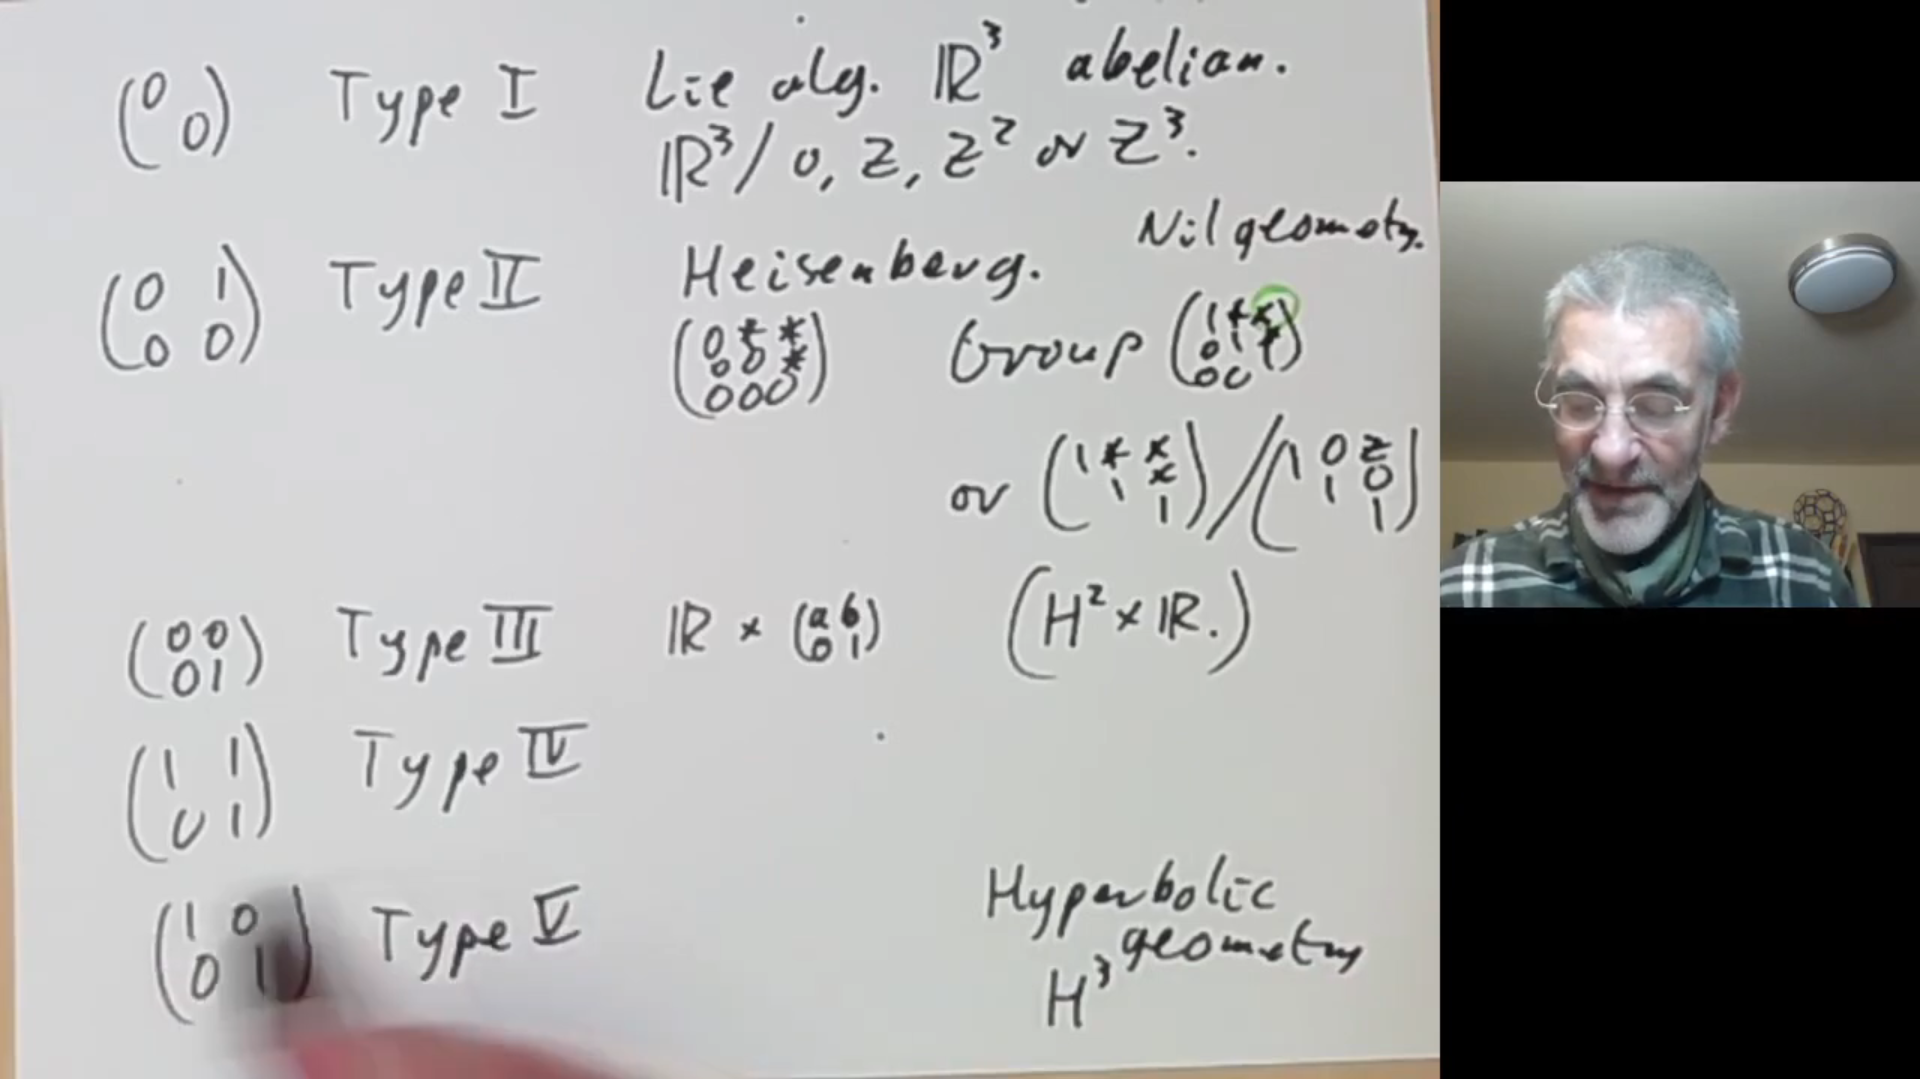 (0 0) Type I Lie alg. ℝ³ abelian.
ℝ³/0, Z, Z² or Z³.
Nil geometry.
(0 1
0 0) Type II Heisenberg.
(0 * *
0 0 *
0 0 0) Group (1 * *
0 1 *
0 0)
or (1 * *
1 *
1) / (1 0 Z
1 0
1)
(0 0
0 1) Type III ℝ × (a b
0 1) (H² × ℝ.)
(1 1
0 1) Type IV
(1 0
0 1) Type V Hyperbolic
geometry
H³